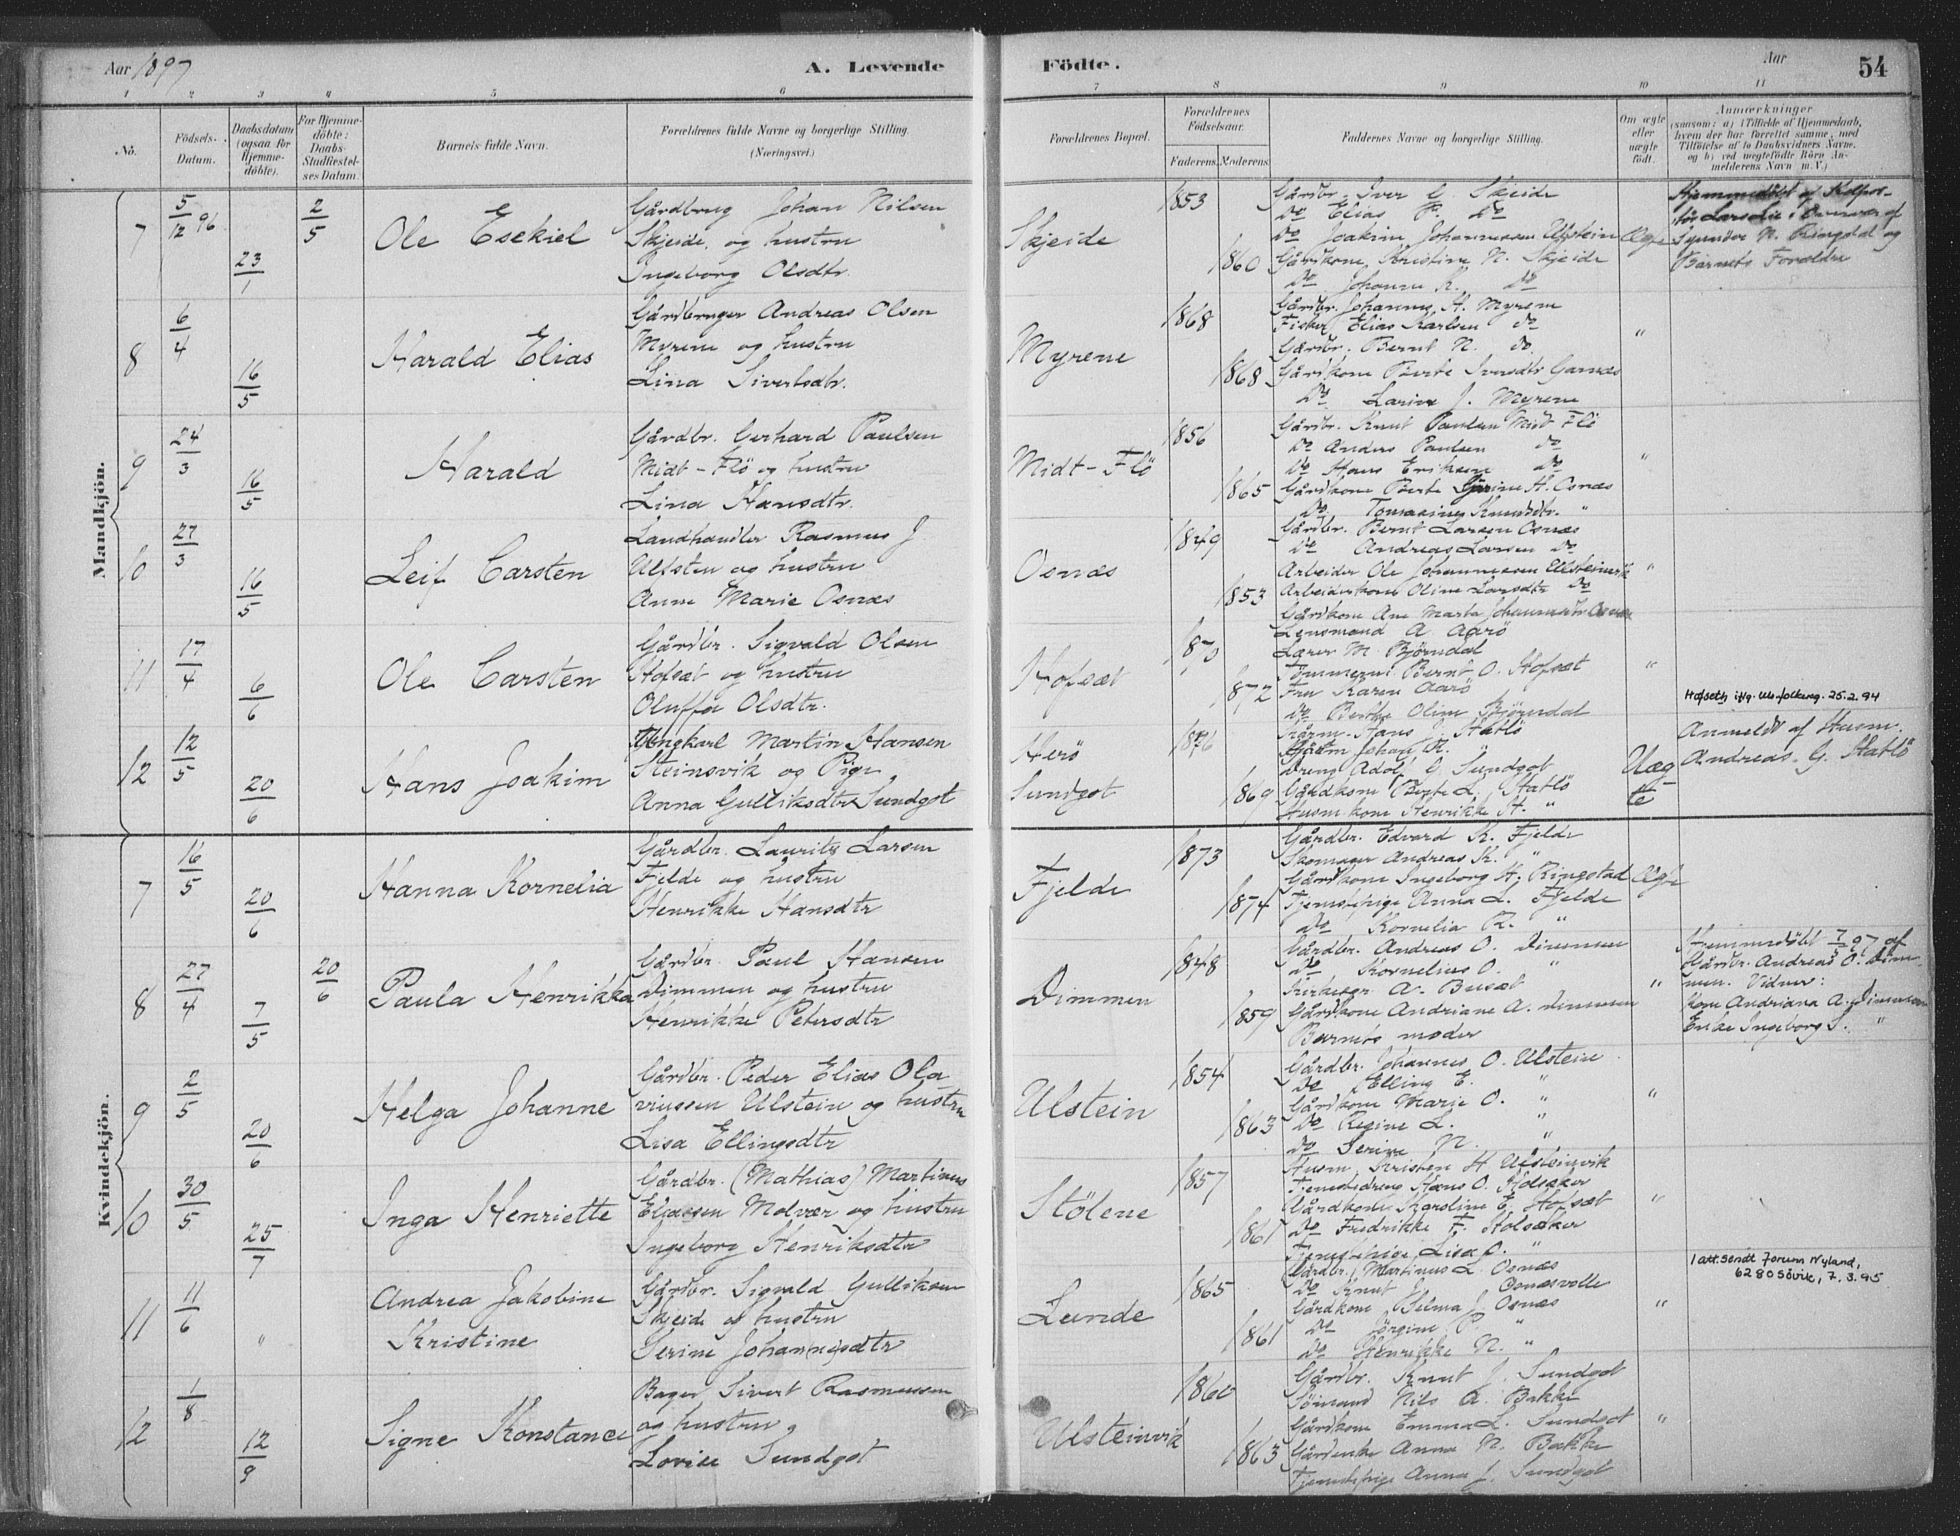 Aar 1897
A. Levende
Födte.
Aar
54
1 2 3 4 5 6 7 8 9 10 11
No.
Födsels-Datum.
Daabsdatum (ogsaa for Hjemmedöbte).
For Hjemmedöbte: Daabs-Stadfæstelses Datum.
Barnets fulde Navn.
Forældrenes fulde Navne og borgerlige Stilling. (Næringsvei.)
Forældrenes Bopæl.
Forældrenes Födselsaar.
Faderens. Moderens.
Faddernes Navne og borgerlige Stilling.
Om ægte eller uægte födt.
Anmærkninger
(saasom: a) i Tilfælde af Hjemmedaab, hvem der har forrettet samme, med Tilföielse af to Daabsvidners Navne. og b) ved uægtefödte Börn Anmelderens Navn m. V.)
Mandkjön.
7 5/12 96 23/1 2/5 Ole Esekiel
Gårdbrug Johan Nilsen
Skjeide, og hustru
Ingeborg Olsdtr.
Skjeide 1853 1860
Gårdbr. Iver E Skeide
Do Elias P. Do
Do Joakim Johannessen Ulstein
Gårdkone Kristine N. Skjeide
Do Johanne K. Do
Ægte
Hjemmedöbt af Kolpor-
tör Larsdie i Overvær af
N. Ringstad og
Barnets Forældre
8 6/4 16/5 Harald Elias
Gårdbruger Andreas Olsen
Myrene og hustru
Lina Sivertsdtr.
Myrene 1868 1868
Gårdbr. Johannes H. Myrene
Fisker Elias Karlsen do
Gårdbr. Bernt N. do
Gårdkone Berte Iversdtr Garnæs
Do Larine J. Myrene
"
9 24/3 16/5 Harald
Gårdbr. Gerhard Paulsen
Midt-Flö og hustru
Lina Hansdtr.
Midt-Flö 1856 1865
Gårdbr. Knut Paulsen Midt Flö
Do Anders Paulsen do
Do Hans Eriksen do
Gårdkone Berte Gjerine H. Osnæs
Do Tomasine Knudsdtr. "
"
10 27/3 16/5 Leif Carsten
Landhandler Rasmus J.
Ulfsten og hustru
Anne Marie Osnæs
Osnæs 1849 1853
Gårdbr. Bernt Larsen Osnæs
Do Andreas Larsen Do
Arbeider Ole Johannessen Ulsteinvik
Arbeiderkone Oline Larsdtr Do
Gårdkone Ane Marta Johannesdtr Osnæs
"
11 17/4 6/6 Ole Carsten
Gårdbr. Sigvald Olsen
Hofsæt og hustru
Oluffa Olsdtr.
Hofsæt 1870 1872
Lensmand A Aarö
Lærer M. Björndal
Tömmerm. Bernt O. Hofsæt
Fru Karen Aarö
Do Berthe Oline Björndal
"
Hofseth iflg. Uls folkereg. 25.2.94
12 12/5 20/6 Hans Joakim
Ungkarl Martin Hansen
Steinsvik og Pige
Anna Gulliksdtr Sundgot
Herö
Sundgot 1876 1869
Hans Hatlö
Johan K. "
Dreng Adolf E Sundgot
Gårdkone Berte L. Hatlö
Husm. kone Henrikke H. "
Uægte
Anmeldt af Husm.
Andreas G. Hatlö
Kvindekjön.
7 16/5 20/6 Hanna Kornelia
Gårdbr. Laurits Larsen
Fjelde og hustru
Henrikke Hansdtr
Fjelde 1873 1874
Gårdbr. Edvard K. Fjelde
Skomager Andreas K. "
Gårdkone Ingeborg H. Ringstad
Tjenestepige Anna L. Fjelde
Do Kornelia R. "
Ægte
8 27/4 7/5 20/6 Paula Henrikka
Gårdbr. Paul Hansen
Dimmen og hustru
Henrikke Petersdtr
Dimmen 1848 1859
Gårdbr. Andreas O. Dimmen
Do Kornelius O. "
Kirkesgr A. Busæt
Gårdkone Andriane A. Dimmen
Barnets moder
"
Hjemmedöbt 7/5 97 af
Gårdbr. Andreas O. Dim-
men. Vidner:
Kone Andriana A. Dimmen
Enke Ingeborg S. "
9 2/5 20/6 Helga Johanne
Gårdbr. Peder Elias Ola-
vinssen Ulstein og hustru
Lisa Ellingsdtr
Ulstein 1854 1863
Gårdbr. Johannes O. Ulstein
Do Elling E. "
Gårdkone Marie O. "
Do Regine L. "
Do Serine N. "
"
10 30/5 25/7 Inga Henriette
Gårdbr. (Mathias) Martinus
Eliassen Molvær og hustru
Ingeborg Henriksdtr
Stölene 1857 1861
Husm. Kristen H Ulsteinvik
Tjenestedreng Hans O. Holsæker
Gårdkone Karoline E. Hofsæt
Do Fredrikke F. Holsæker
Tjenestepige Lisa O. "
"
11 11/6 " Andrea Jakobine
Kristine
Gårdbr. Sigvald Gulliksen
Skjeide og hustru
Serine Johan(ne)sdtr
Lunde 1865 1861
Gårdbr. Martinus L. Osnæs
Do Knut Osnæsvolle
Gårdkone Helma J. Osnæs
Do Jörgine P. "
Do Henrikke N. "
"
1 att. sendt Jorunn Nyland,
6280 Søvik, 7.3.95
12 1/8 12/9 Signe Konstance
Bager Sivert Rasmussen
og hustru
Lovise Sundgot
Ulsteinvik 1860 1863
Gårdbr. Knut J. Sundgot
Sömand Nils A. Bakke
Gårdkone Emma L. Sundgot
Gårdenke Anna N. Bakke
Tjenestepige Anna J. Sundgot
"